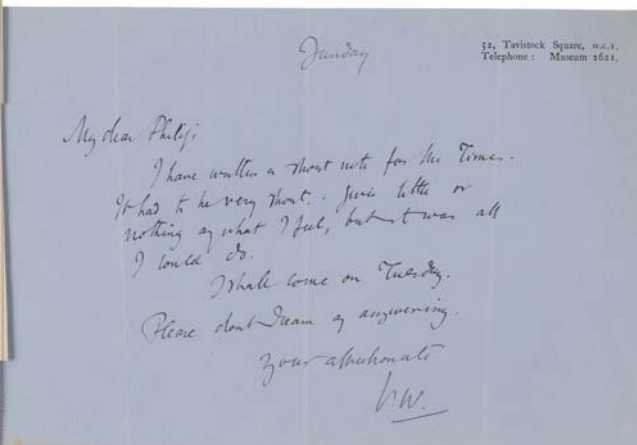 Sunday
52, Tavistock Square, W.C.1.
Telephone : Museum 2621.
My dear Philip
I have written a short note for the Times.
It had to be very short. & gives little or
nothing of what I feel, but it was all
I could do.
I shall come on Tuesday.
Please dont dream of answering.
your affectionate
V.W.